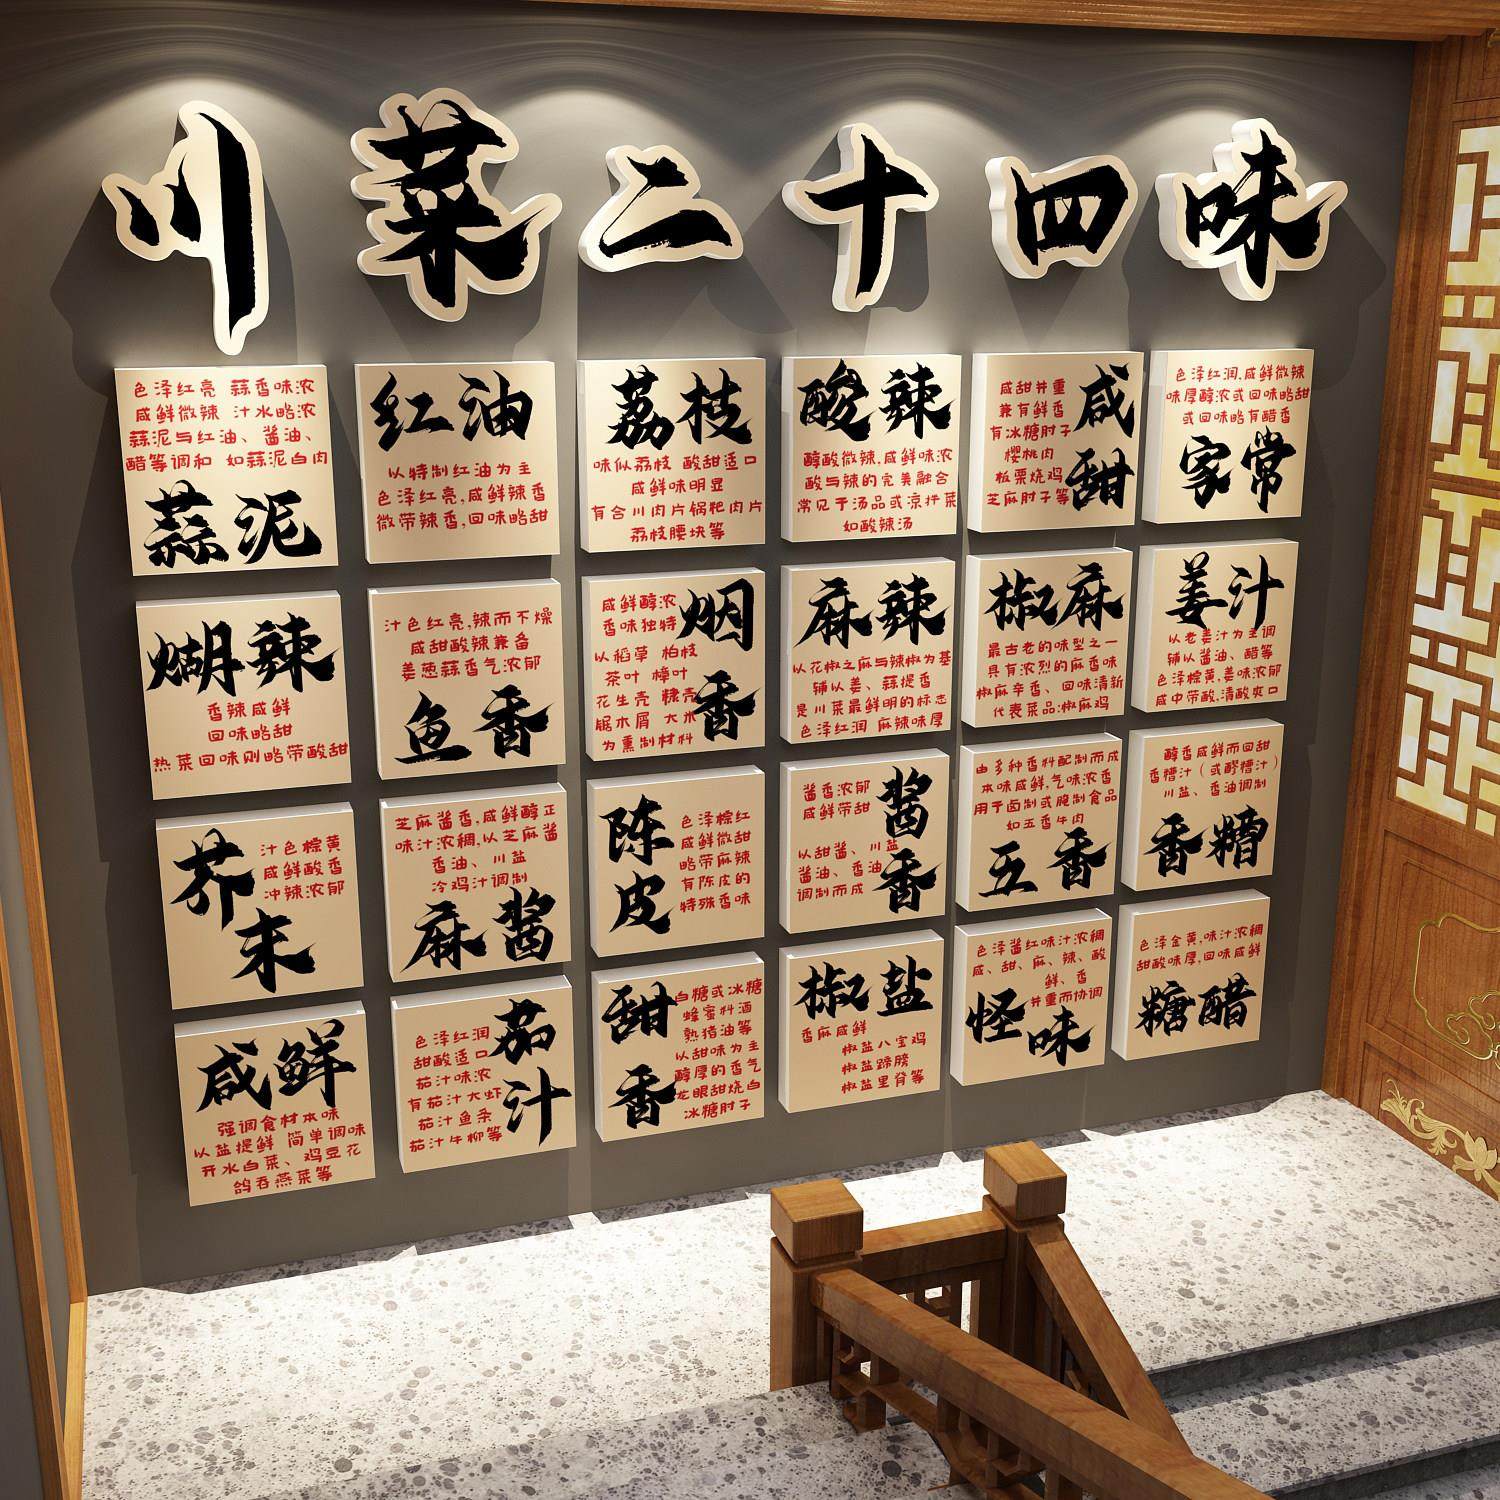 川菜二十四味
色泽红亮 蒜香味浓
咸鲜微辣 汁水略浓
蒜泥与红油、酱油、
醋等调和 如蒜泥白肉
蒜泥
红油
以特制红油为主
色泽红亮,咸鲜辣香
微带辣香,回味略甜
荔枝
味似荔枝 酸甜适口
咸鲜味明显
有合川肉片锅粑肉片
荔枝腰块等
酸辣
醇酸微辣,咸鲜味浓
酸与辣的完美融合
常见于汤品或凉拌菜
如酸辣汤
咸甜并重
兼有鲜香
有冰糖肘子
樱桃肉
板栗烧鸡
芝麻肘子等
咸甜
色泽红润,咸鲜微辣
味厚醇浓或回味略甜
或回味略有醋香
家常
煳辣
香辣咸鲜
回味略甜
热菜回味则略带酸甜
汁色红亮,辣而不燥
咸甜酸辣兼备
姜葱蒜香气浓郁
鱼香
咸鲜醇浓
香味独特
以稻草 柏枝
茶叶 樟叶
花生壳 糠壳
锯木屑 大木
为熏制材料
烟香
麻辣
以花椒之麻与辣椒为基
辅以姜、蒜提香
是川菜最鲜明的标志
色泽红润 麻辣味厚
椒麻
最古老的味型之一
具有浓烈的麻香味
椒麻辛香、回味清新
代表菜品:椒麻鸡
姜汁
以老姜汁为主调
辅以酱油、醋等
色泽棕黄,姜味浓郁
咸中带酸,清酸爽口
芥末
汁色棕黄
咸鲜酸香
冲辣浓郁
芝麻酱香,咸鲜醇正
味汁浓稠,以芝麻酱
香油、川盐
冷鸡汁调制
麻酱
陈皮
色泽棕红
咸鲜微甜
略带麻辣
有陈皮的
特殊香味
酱香浓郁
咸鲜带甜
以甜酱、川盐
酱油、香油
调制而成
酱香
由多种香料配制而成
本味咸鲜,气味浓香
用于卤制或腌制食品
如五香牛肉
五香
醇香咸鲜而回甜
香糟汁(或醪糟汁)
川盐、香油调制
香糟
咸鲜
强调食材本味
以盐提鲜 简单调味
开水白菜、鸡豆花
鸽吞燕菜等
色泽红润
甜酸适口
茄汁味浓
有茄汁大虾
茄汁鱼条
茄汁牛柳等
茄汁
甜香
白糖或冰糖
蜂蜜料酒
熟猪油等
以甜味为主
醇厚的香气
龙眼甜烧白
冰糖肘子
椒盐
香麻咸鲜
椒盐八宝鸡
椒盐蹄膀
椒盐里脊等
色泽酱红味汁浓稠
咸、甜、麻、辣、酸
鲜、香
并重而协调
怪味
色泽金黄,味汁浓稠
甜酸味厚,回味咸鲜
糖醋